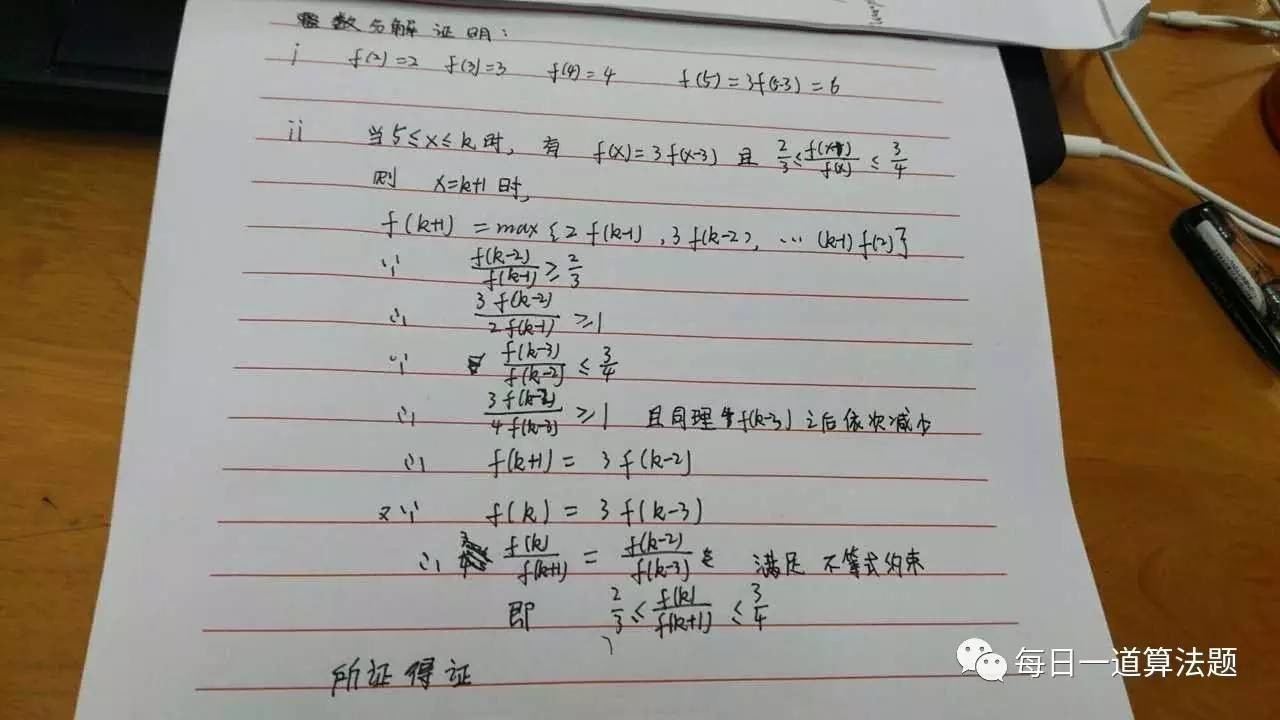 整数分解证明：
i f(2)=2 f(3)=3 f(4)=4 f(5)=3f(5-3)=6
ii 当5≤x≤k时，有 f(x)=3f(x-3) 且 2/3≤f(x-1)/f(x)≤3/4
则 x=k+1时，
f(k+1)=max{2f(k-1),3f(k-2),…(k-1)f(2)}
∵ f(k-2)/f(k-1)≥2/3
∴ 3f(k-2)/2f(k-1)≥1
∵ f(k-3)/f(k-2)≤3/4
∴ 3f(k-2)/4f(k-3)≥1 且同理 f(k-3)之后依次减小
∴ f(k+1)=3f(k-2)
又∵ f(k)=3f(k-3)
∴ f(k)/f(k+1)=f(k-2)/f(k-3) 满足不等式约束
即 2/3≤f(k)/f(k+1)≤3/4
所证得证
每日一道算法题